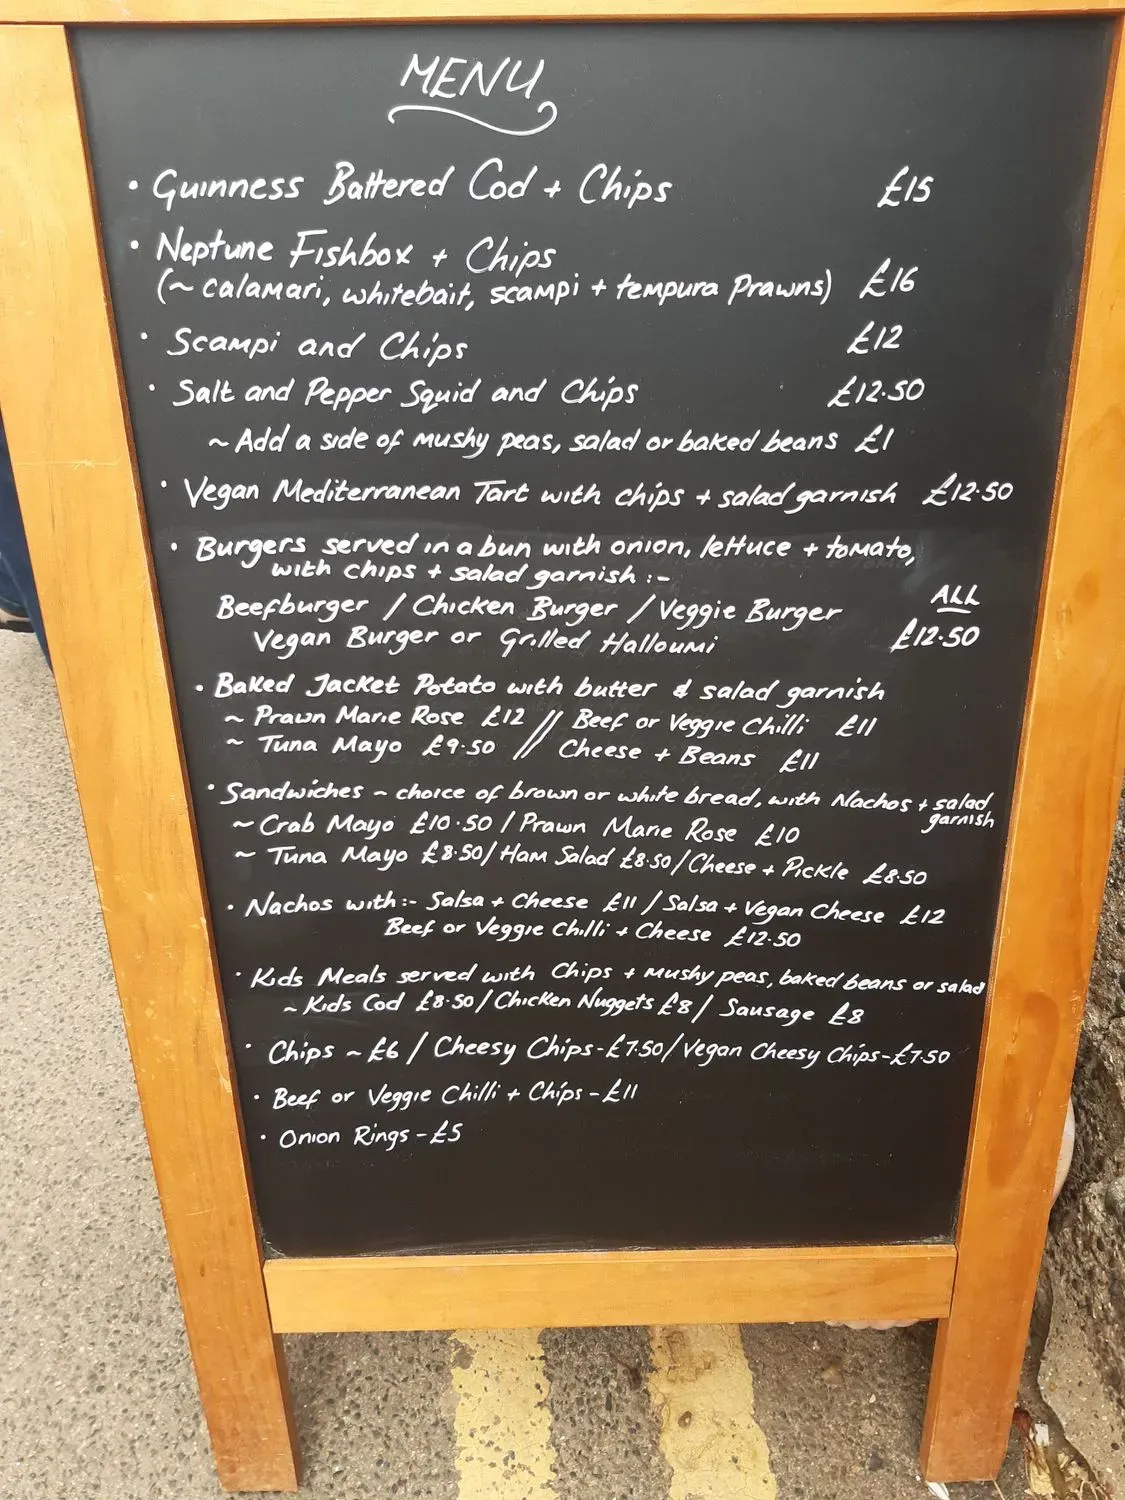 MENU
• Guinness Battered Cod + Chips £15
• Neptune Fishbox + Chips
(~ calamari, whitebait, scampi + tempura Prawns) £16
• Scampi and Chips £12
• Salt and Pepper Squid and Chips £12.50
~ Add a side of mushy peas, salad or baked beans £1
• Vegan Mediterranean Tart with chips + salad garnish £12.50
• Burgers served in a bun with onion, lettuce + tomato,
with chips + salad garnish :-
Beefburger / Chicken Burger / Veggie Burger ALL
Vegan Burger or Grilled Halloumi £12.50
• Baked Jacket Potato with butter & salad garnish
~ Prawn Marie Rose £12 // Beef or Veggie Chilli £11
~ Tuna Mayo £9.50 // Cheese + Beans £11
• Sandwiches ~ choice of brown or white bread, with Nachos + salad
garnish
~ Crab Mayo £10.50 / Prawn Marie Rose £10
~ Tuna Mayo £8.50/ Ham Salad £8.50/ Cheese + Pickle £8.50
• Nachos with:- Salsa + Cheese £11 / Salsa + Vegan Cheese £12
Beef or Veggie Chilli + Cheese £12.50
• Kids Meals served with Chips + mushy peas, baked beans or salad
~ Kids Cod £8.50/ Chicken Nuggets £8 / Sausage £8
• Chips ~ £6 / Cheesy Chips-£7.50/ Vegan Cheesy Chips-£7.50
• Beef or Veggie Chilli + Chips - £11
• Onion Rings - £5